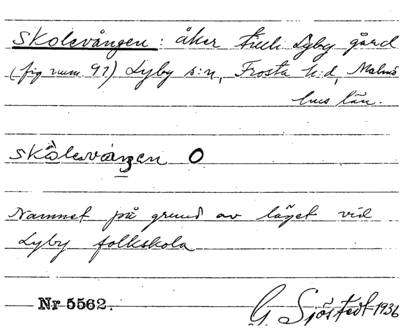 Skolevången: åker till Lyby gård
(fig num. 91) Lyby s:n, Frosta h:d, Malmö
hus län.
skålevån̥gen O
Namnet på grund av läget vid
Lyby folkskola
Nr 5562.
G Sjöstedt 1936